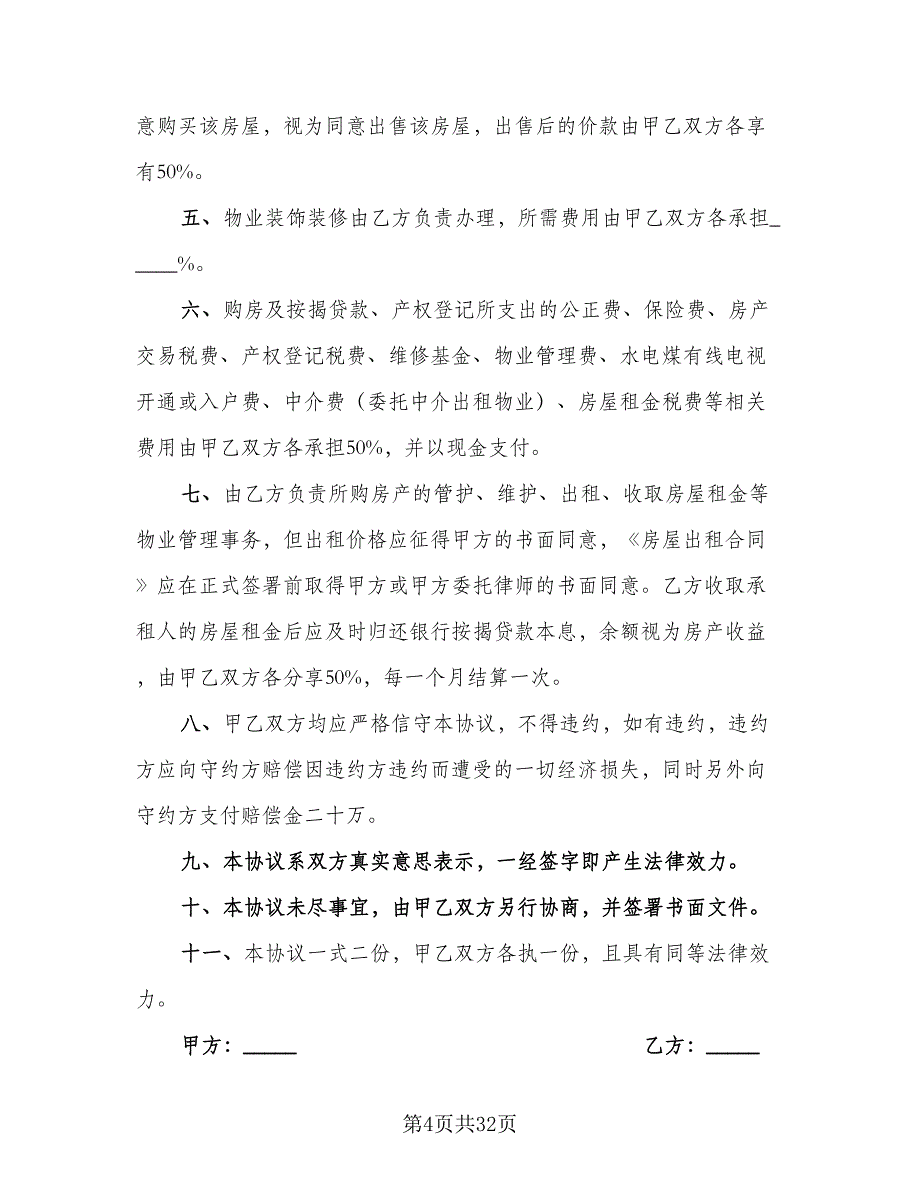 意购买该房屋，视为同意出售该房屋，出售后的价款由甲乙双方各享
有50%。
五、物业装饰装修由乙方负责办理，所需费用由甲乙双方各承担_
____%。
六、购房及按揭贷款、产权登记所支出的公正费、保险费、房产
交易税费、产权登记税费、维修基金、物业管理费、水电煤有线电视
开通或入户费、中介费（委托中介出租物业）、房屋租金税费等相关
费用由甲乙双方各承担50%，并以现金支付。
七、由乙方负责所购房产的管护、维护、出租、收取房屋租金等
物业管理事务，但出租价格应征得甲方的书面同意，《房屋出租合同
》应在正式签署前取得甲方或甲方委托律师的书面同意。乙方收取承
租人的房屋租金后应及时归还银行按揭贷款本息，余额视为房产收益
，由甲乙双方各分享50%，每一个月结算一次。
八、甲乙双方均应严格信守本协议，不得违约，如有违约，违约
方应向守约方赔偿因违约方违约而遭受的一切经济损失，同时另外向
守约方支付赔偿金二十万。
九、本协议系双方真实意思表示，一经签字即产生法律效力。
十、本协议未尽事宜，由甲乙双方另行协商，并签署书面文件。
十一、本协议一式二份，甲乙双方各执一份，且具有同等法律效
力。
甲方：_____ 乙方：_____
第4页共32页